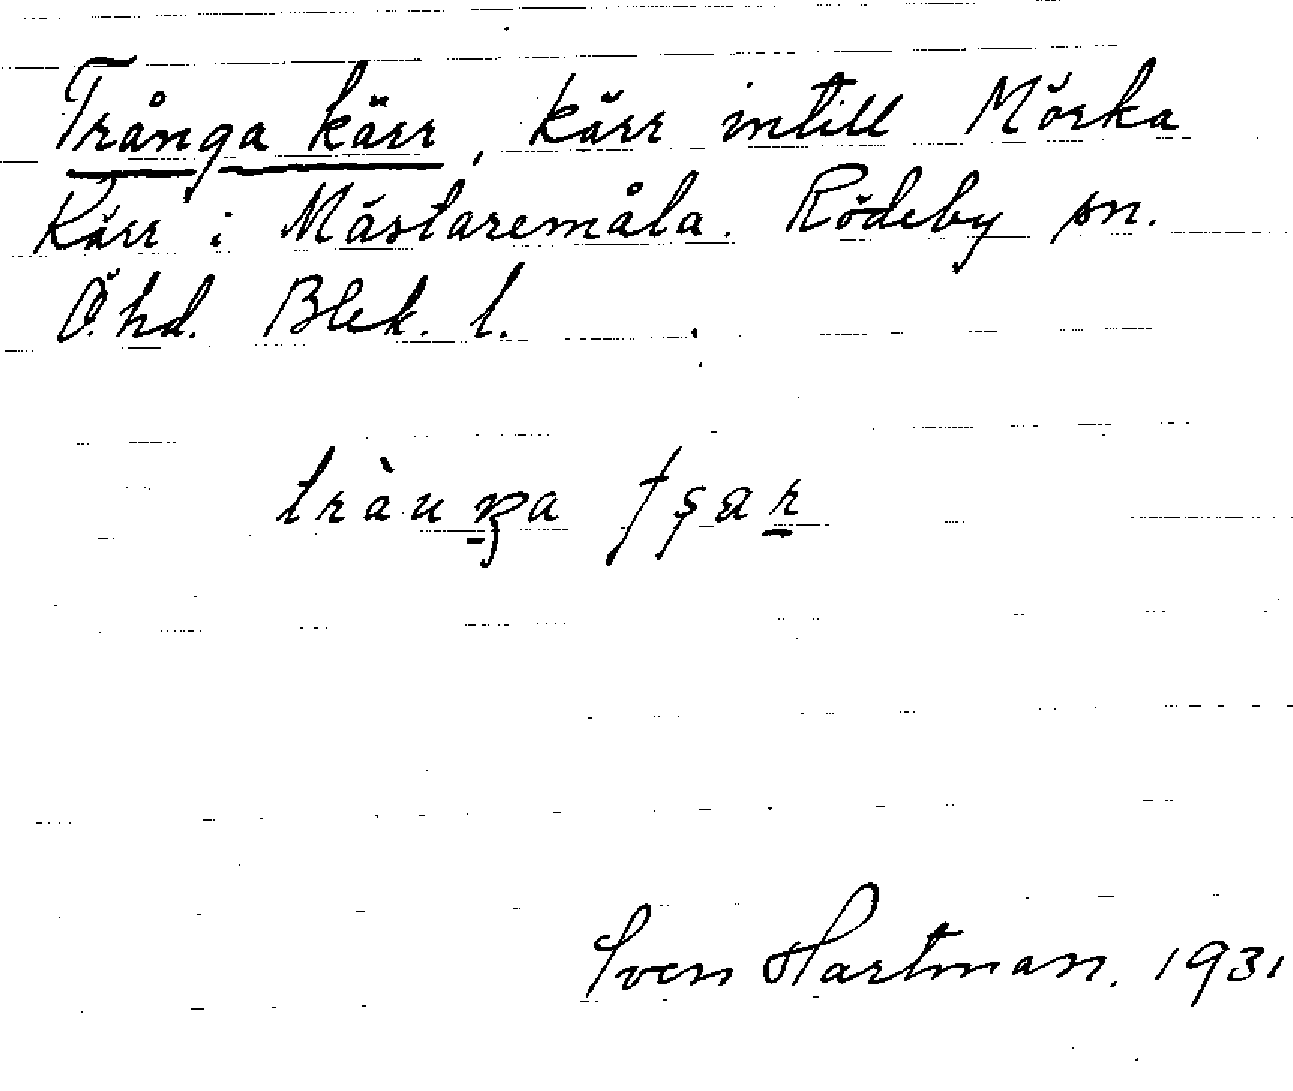 Trånga kärr, kärr intill Mörka
Kärr i Mästaremåla. Rödeby sn.
Ö. hd. Blek. l.
Sven Hartman. 1931